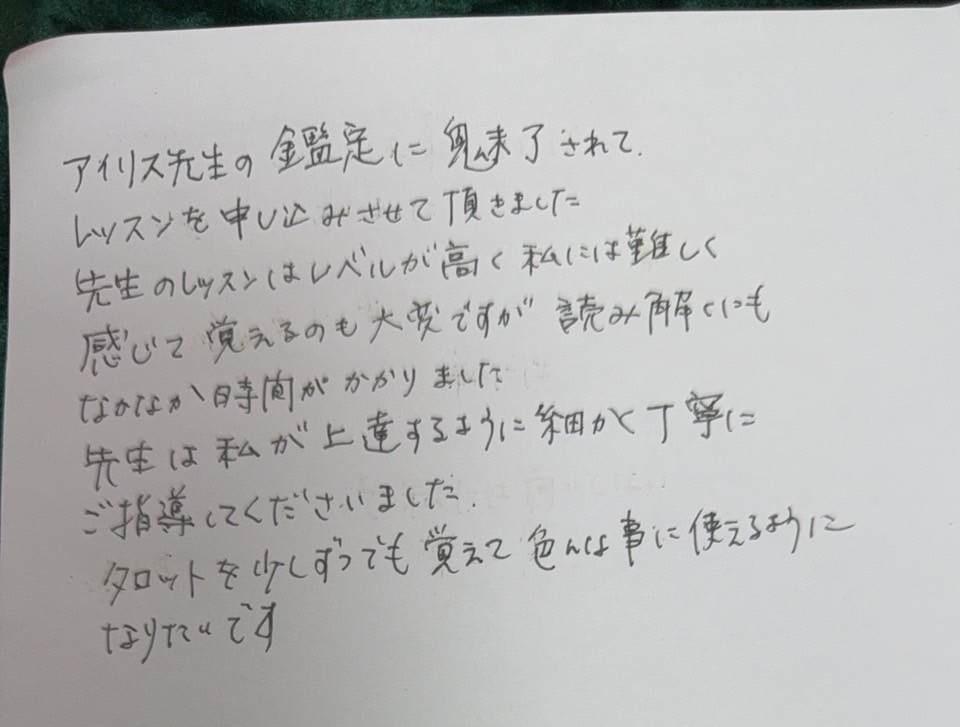 アイリス先生の鑑定に魅了されて.
レッスンを申し込みさせて頂きました
先生のレッスンはレベルが高く私には難しく
感じて覚えるのも大変ですが読み解くにも
なかなか時間がかかりました
先生は私が上達するように細かく丁寧に
ご指導してくださいました.
タロットを少しずつでも覚えて色んな事に使えるように
なりたいです